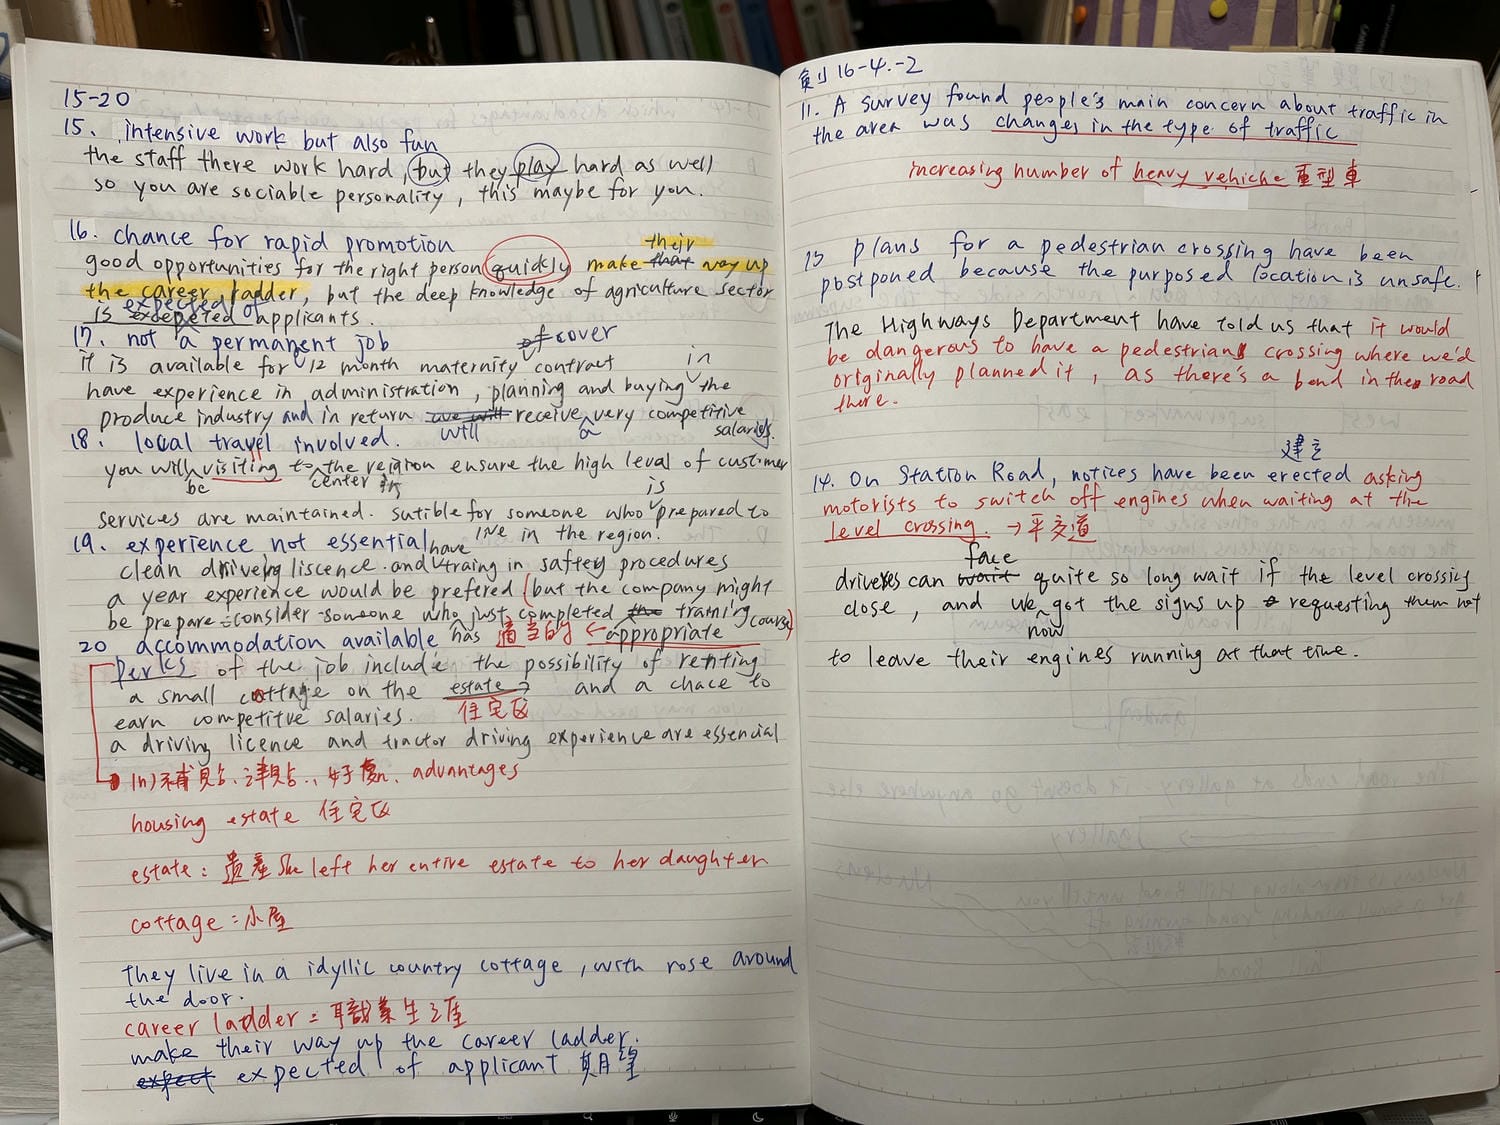 15-20
15. intensive work but also fun
the staff there work hard, but they play hard as well
so you are sociable personality, this maybe for you.
16. chance for rapid promotion
their
good opportunities for the right person quickly make that way up
the career ladder, but the deep knowledge of agriculture sector
expected of
is applicants.
17. not a permanent job
of cover
it is available for 12 month maternity contract
in
have experience in administration, planning and buying the
produce industry and in return we will receive very competitive
will a salaries.
18. local travel involved.
you will visiting to the region ensure the high leval of customer
be center in
is
services are maintained. sutible for someone who prepared to
live in the region.
19. experience not essential
have
clean driveing liscence and traing in saftey procedures
a year experience would be prefered (but the company might
be prepare consider someone who just completed the training course)
has 適當的 ← appropriate
20 accommodation available
Perks of the job include the possibility of renting
a small cottage on the estate → and a chace to
earn competitve salaries. 住宅区
a driving licence and tractor driving experience are essencial
(n) 補貼、津貼、好處 advantages
housing estate 住宅区
estate: 遺產 She left her entire estate to her daughter
cottage = 小屋
They live in a idyllic country cottage, with rose around
the door.
career ladder = 職業生涯
make their way up the career ladder.
expect expected of applicant 期望
劍16-4.-2
11. A survey found people's main concern about traffic in
the area was changes in the type of traffic
increasing number of heavy vehicle 重型車
13 plans for a pedestrian crossing have been
postponed because the purposed location is unsafe.
The Highways Department have told us that it would
be dangerous to have a pedestrian crossing where we'd
originally planned it, as there's a bend in the road
there.
建立
14. On Station Road, notices have been erected asking
motorists to switch off engines when waiting at the
level crossing. → 平交道
face
driveres can wait quite so long wait if the level crossing
close, and we got the signs up requesting them not
now
to leave their engines running at that time.